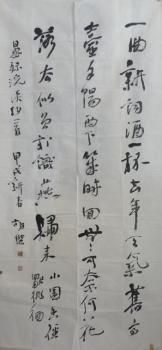 一曲新詞酒一杯去年天氣舊亭
臺夕陽西下幾時回無可奈何花
落去似曾相識燕歸來
小園香徑
獨徘徊
晏殊浣溪沙一首 甲戌